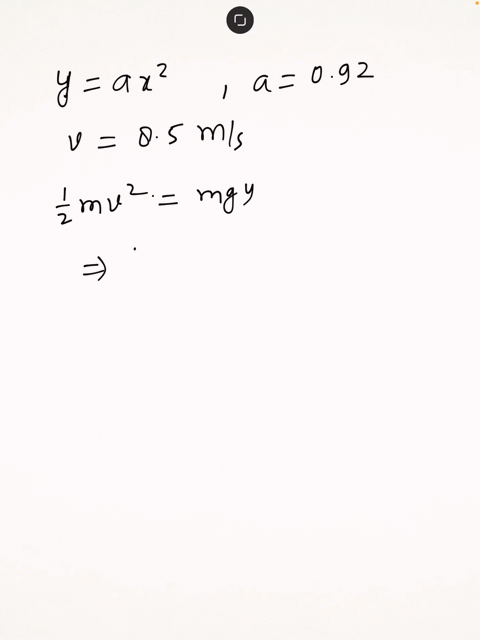 y = ax² , a = 0.92
v = 0.5 m/s
½mv² = mgy
⇒